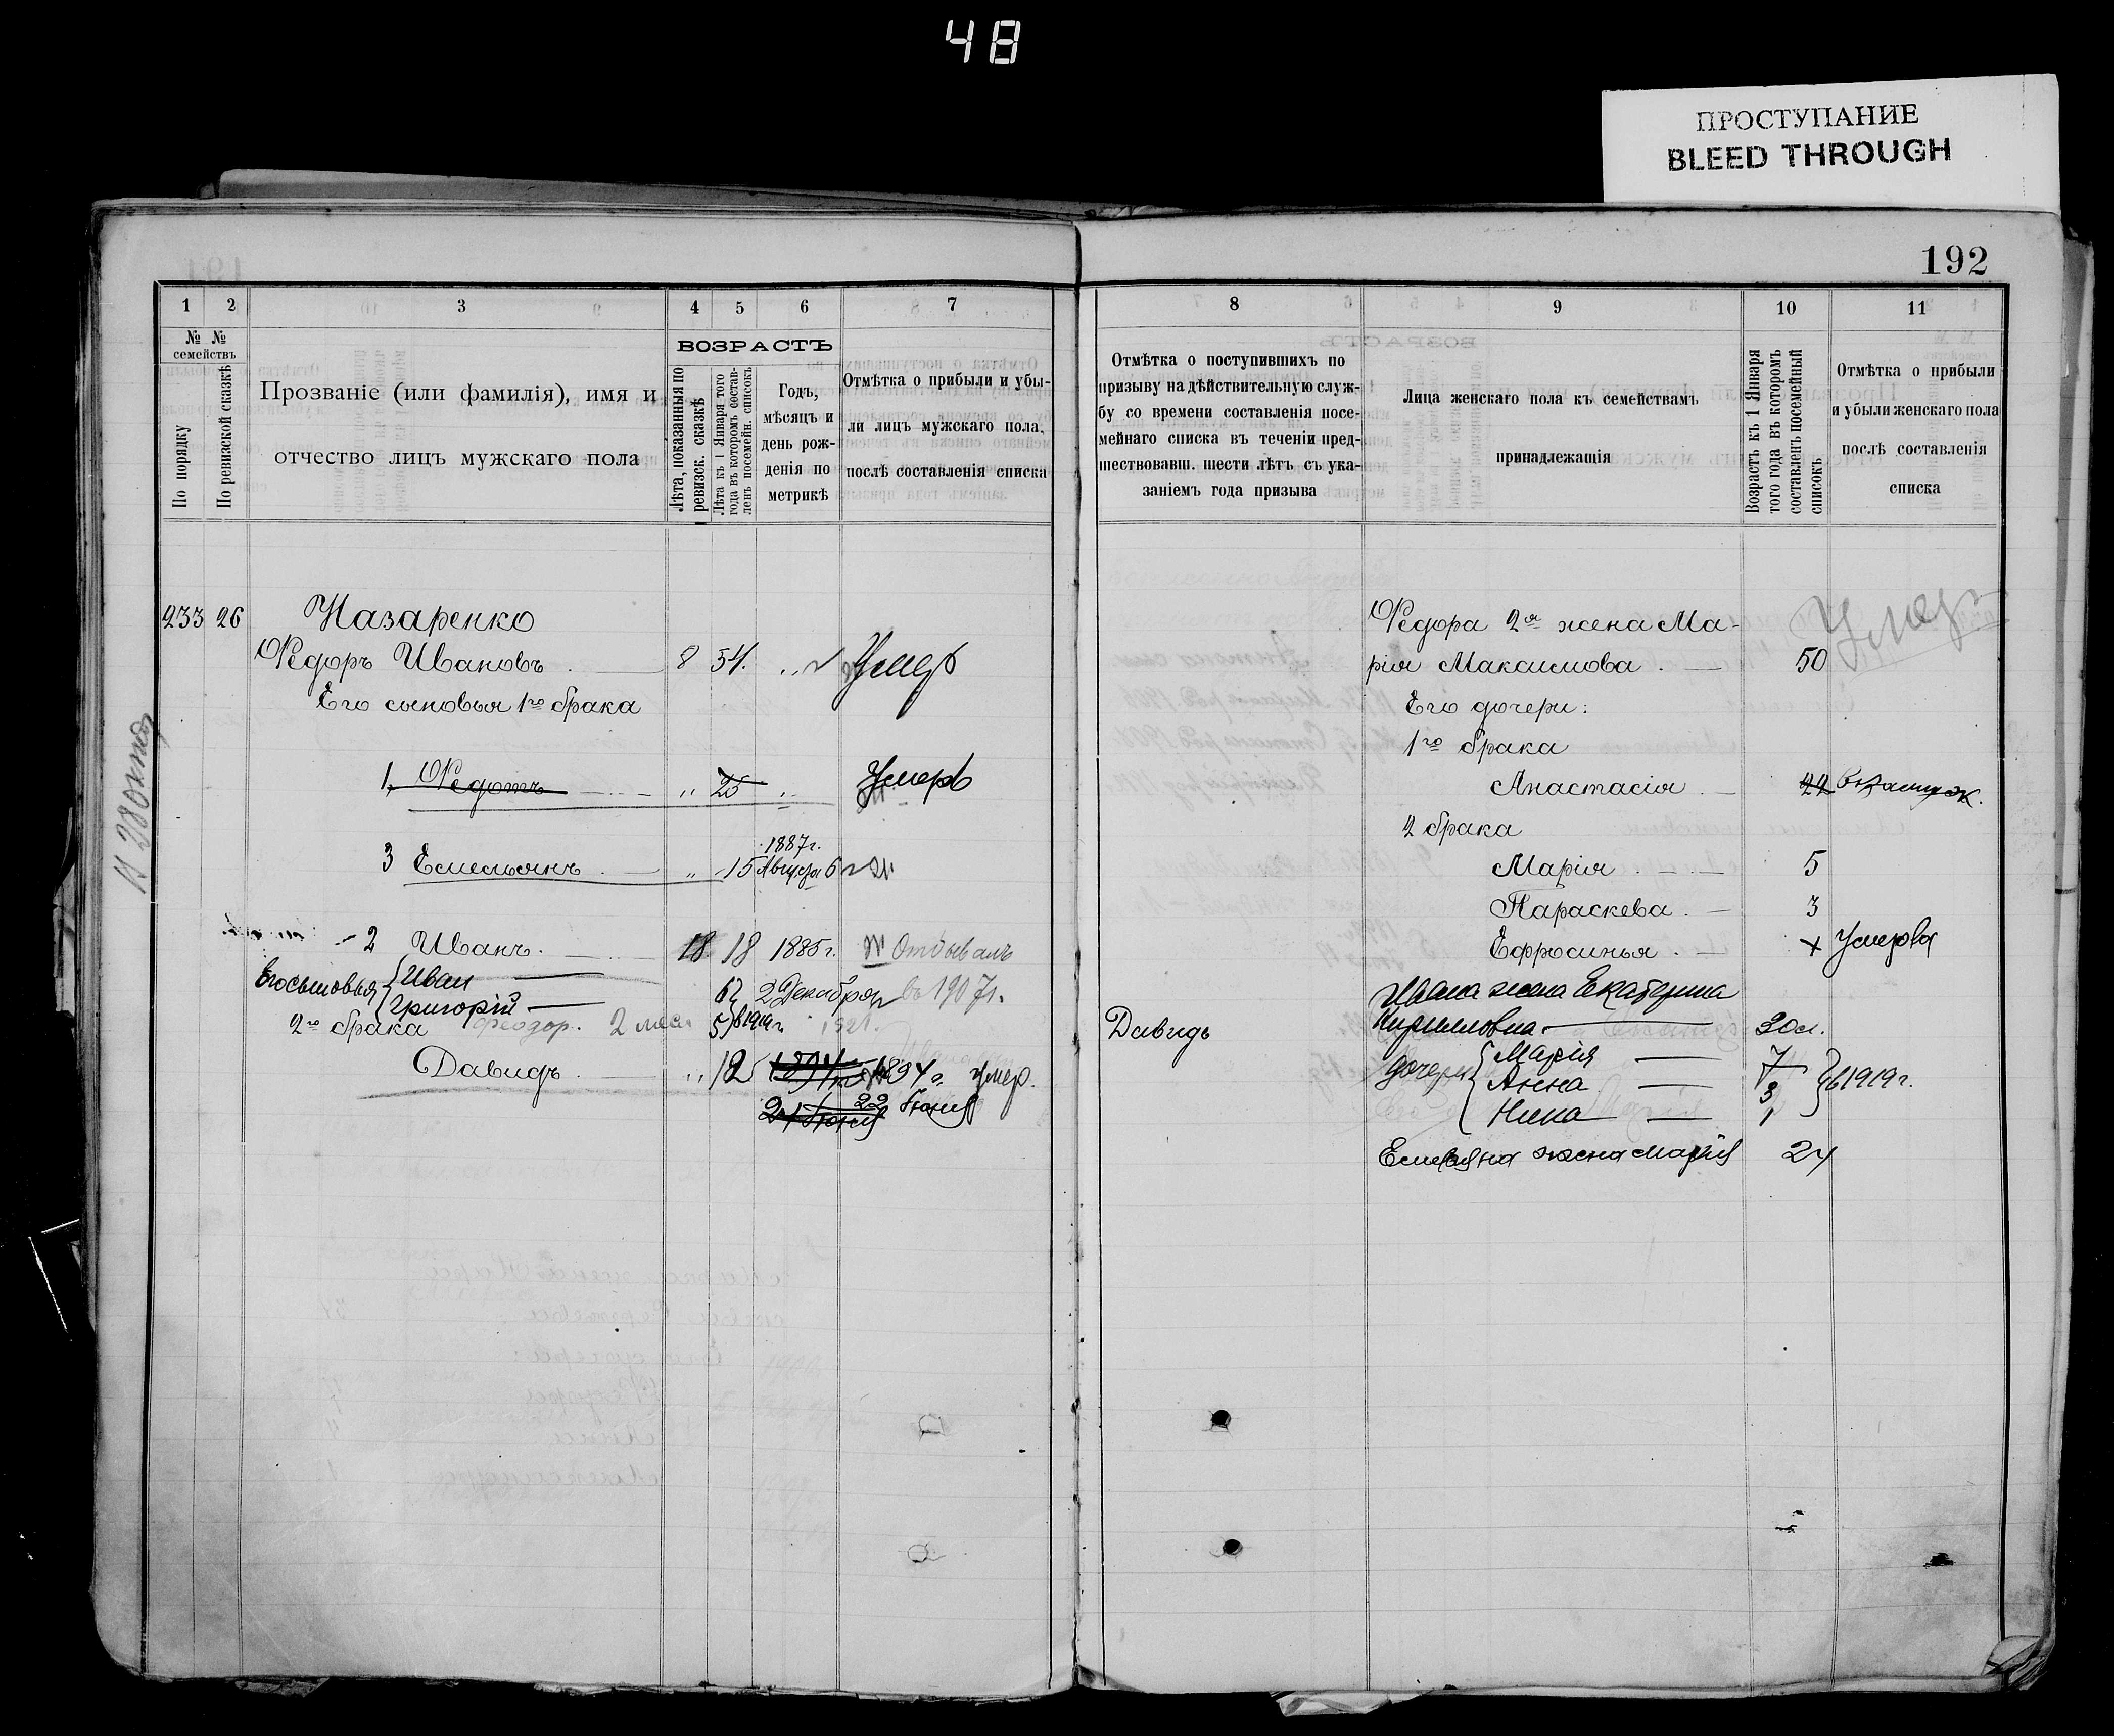 48
ПРОСТУПАНИЕ
BLEED THROUGH
192
1 2 3 4 5 6 7
№ №
семействъ
По порядку
По ревизской сказкѣ
Прозваніе (или фамилія), имя и
отчество лицъ мужскаго пола
ВОЗРАСТЪ
Лѣта, показанныя по
ревизск. сказкѣ
Лѣта къ 1 Января того
года въ которомъ состав-
ленъ посемейн. списокъ
Годъ,
мѣсяцъ и
день рож-
денія по
метрикѣ
Отмѣтка о прибыли и убы-
ли лицъ мужскаго пола,
послѣ составленія списка
233 26 Назаренко
Федоръ Ивановъ 8 54. Умеръ
Его сыновья 1го брака
1, Федотъ " 25 " Умеръ
1887г.
3 Емельянъ " 15 Августа 6
2 Иванъ. 18 18 1885г. Отбывалъ
Его сыновья { Иван 6 2 Декабря въ 1907г.
Григорій 5 в 1919г.
2го брака Феодор. 2 мес. 1921.
Давидъ " 12 1894г. Умер.
24 Іюня 22 Іюня
8 9 10 11
Отмѣтка о поступившихъ по
призыву на дѣйствительную служ-
бу со времени составленія посе-
мейнаго списка въ теченіи пред-
шествовавш. шести лѣтъ съ ука-
заніемъ года призыва
Лица женскаго пола къ семействамъ
принадлежащія
Возрастъ къ 1 Января
того года въ которомъ
составленъ посемейный
списокъ
Отмѣтка о прибыли
и убыли женскаго пола
послѣ составленія
списка
Федора 2я жена Ма-
рія Максимова 50 Умер
Его дочери:
1го брака
Анастасія 22 в замуж.
2 брака
Марія 5
Параскева. 3
Ефросинья. + Умерла
Ивана жена Екатерина
Давидъ Кирилловна. 30 л.
дочери { Марія 7
Анна 3 } в 1919г.
Нина 1
Емельяна жена Марія 24